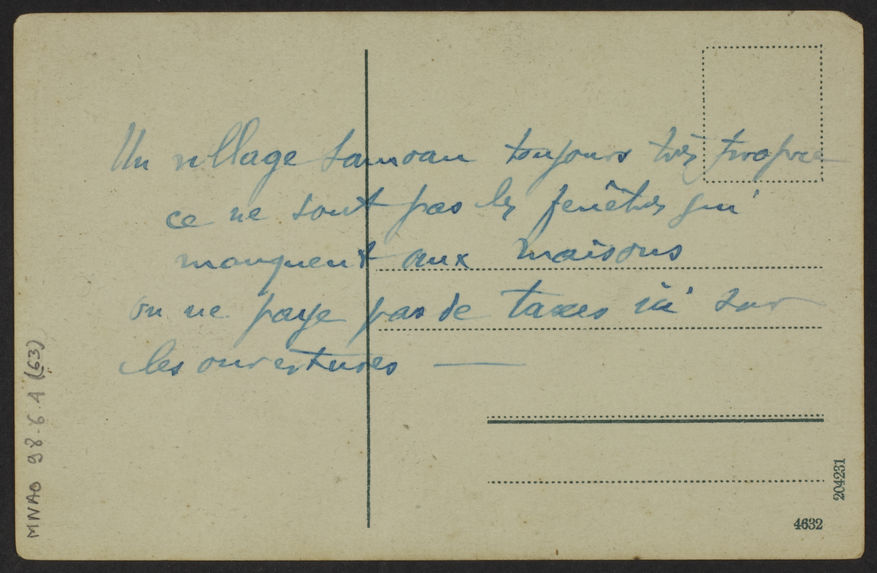 Un village Samoan toujours très propre
ce ne sont pas les fenêtres qui
manquent aux maisons
on ne paye pas de taxes ici sur
les ouvertures —
MNAO 98.6.1 (63)
204231
4632